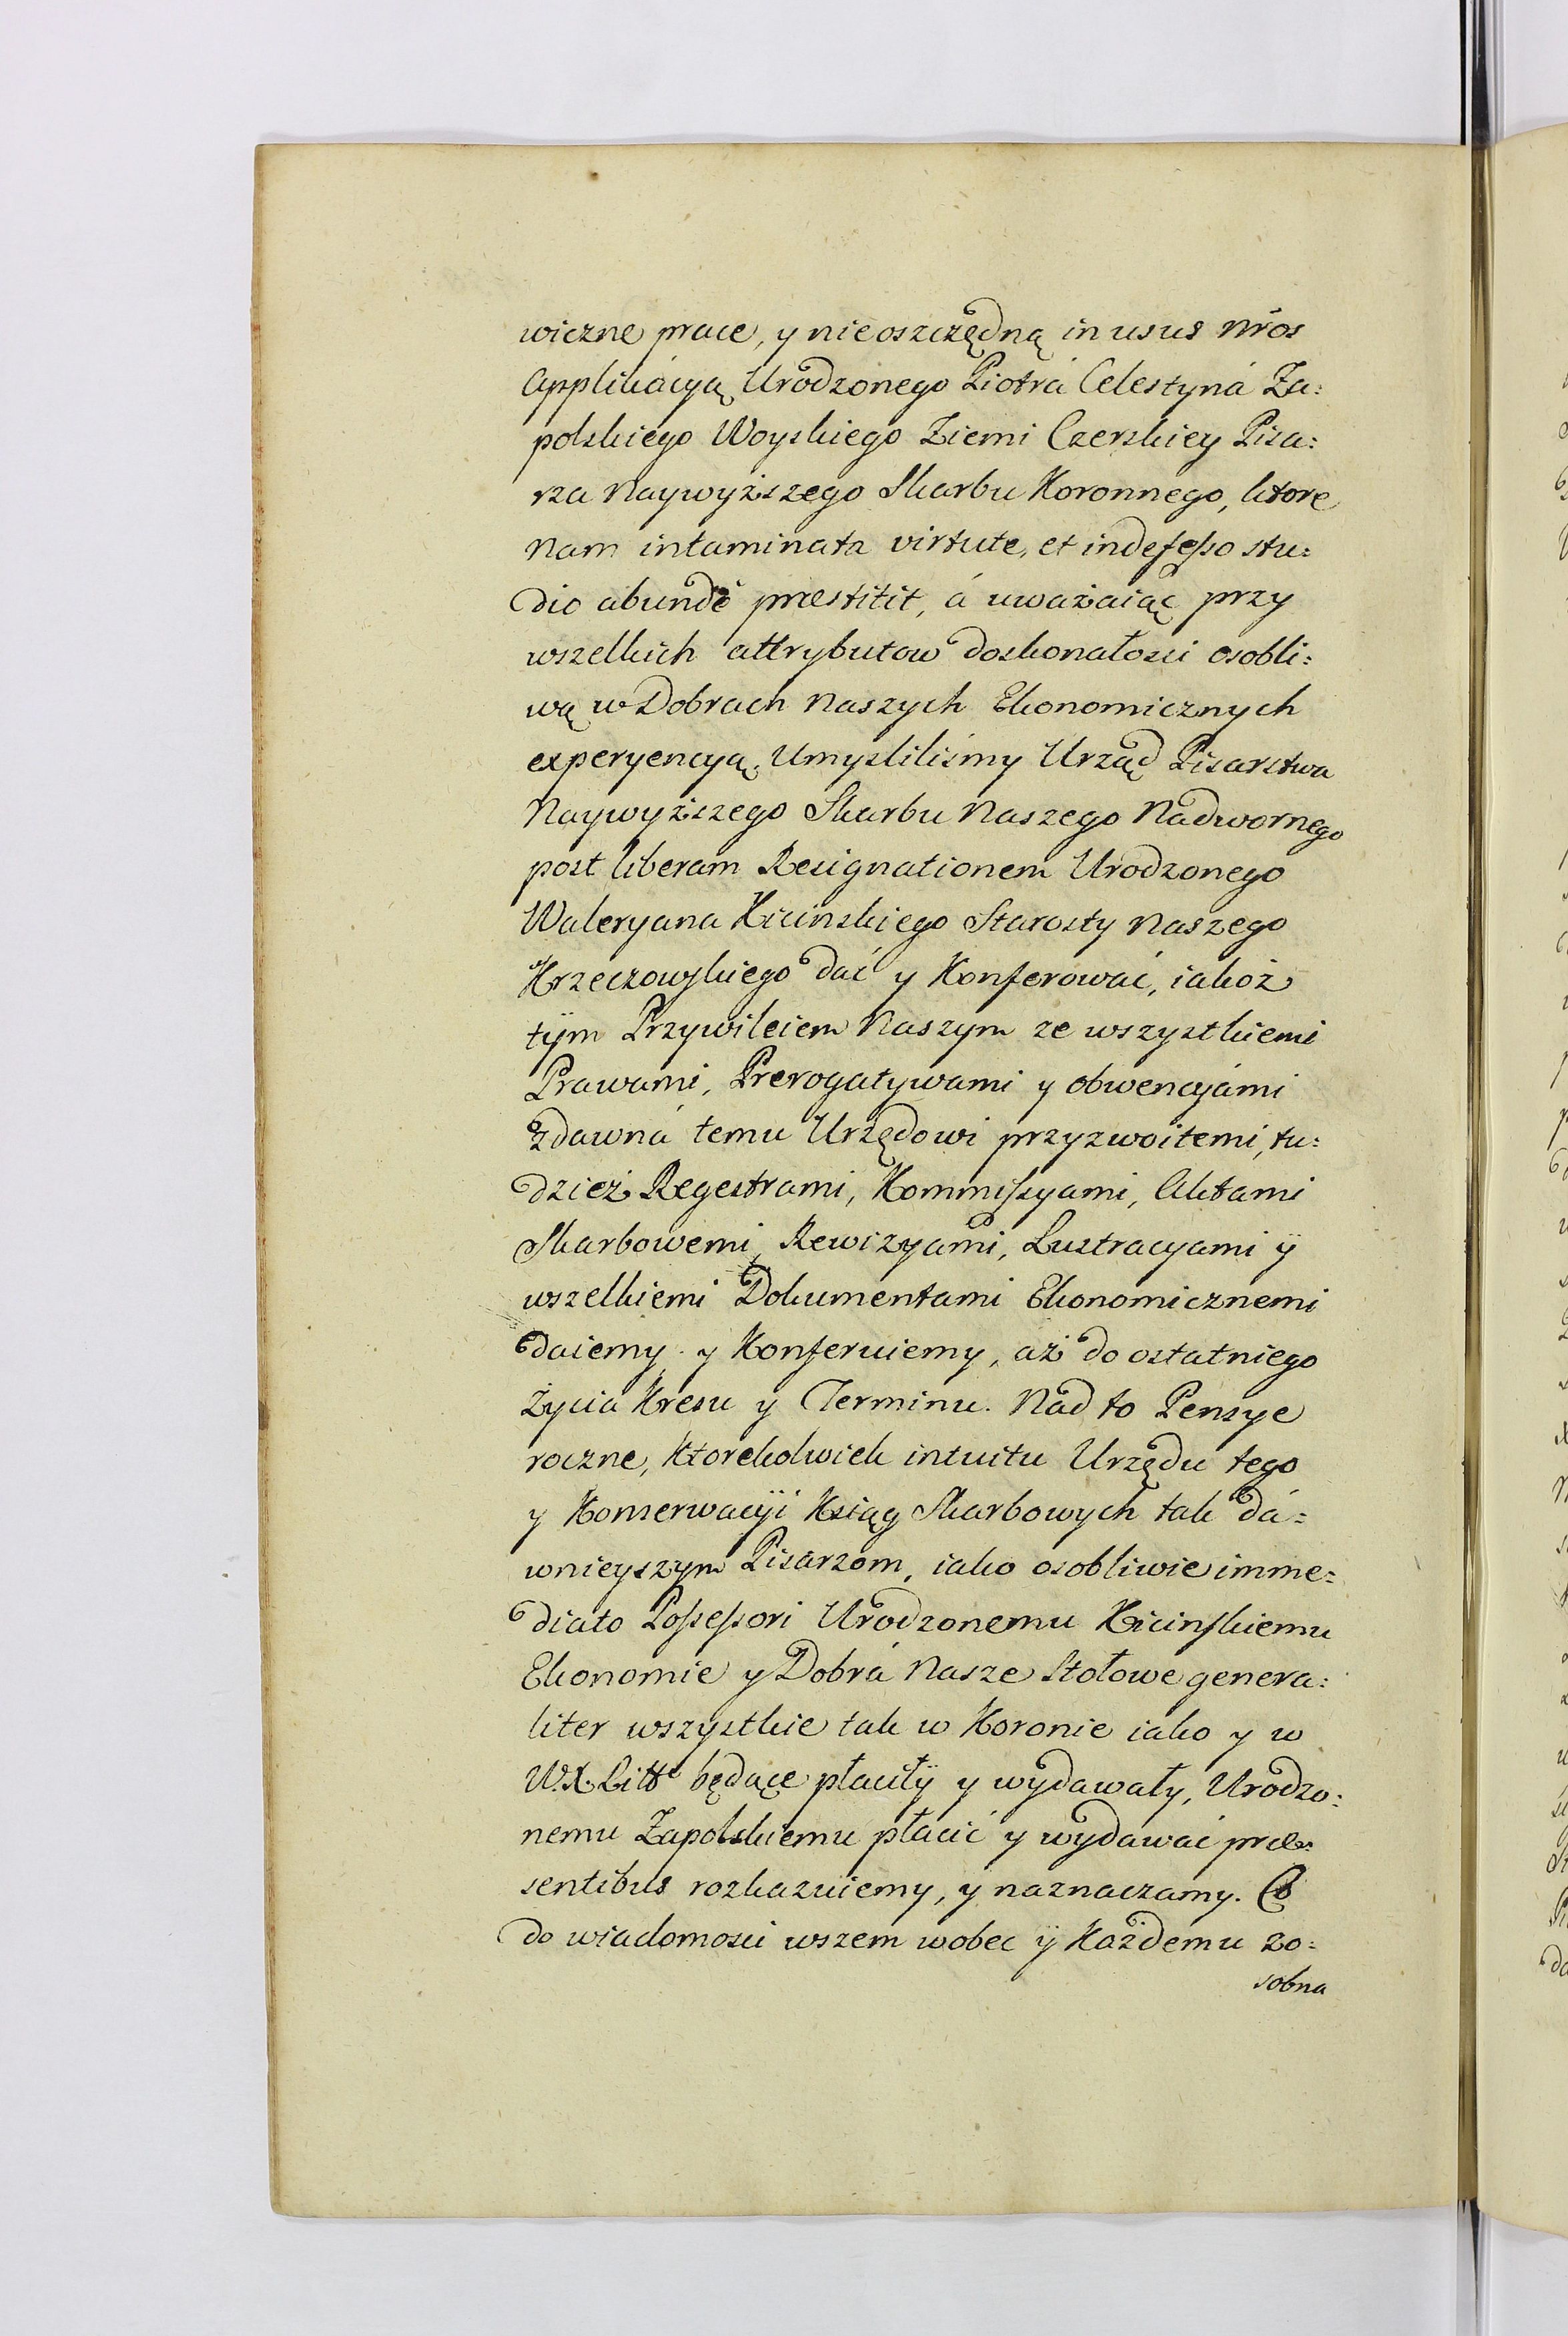 wiczne prace, y nieoszczędną in usus nr̃os
Applikácyą Urodzonego Piotrá Celestyná Za:
polskiego Woyskiego Ziemi Czerskiey Pisa:
rza Naywyższego Skarbu Koronnego, ktore
Nam intaminata virtute, et indefesso stu:
dio abundè præstitit, á uważaiąc przy
wszelkich attrybutow doskonałosci osobli:
wą w Dobrach Naszych Ekonomicznych
experyencyą, Umyslilismy Urząd Pisarstwa
Naywyższego Skarbu Naszego Nadwornego
post liberam Resignationem Urodzonego
Waleryana Kicinskiego Starosty Naszego
Krzeczowskiego dać y Konferować, iakoż
tÿm Przywileiem Naszym ze wszystkiemi
Prawami, Prerogatywami y obwencyámi
zdawná temu Urzędowi przyzwoitemi, tu:
dzież Regestrami, Kommissyami, Aktami
Skarbowemi, Rewizyami, Lustracyami ÿ
wszelkiemi Dokumentami Ekonomicznemi
daiemy y Konferuiemy, aż do ostatniego
Życia Kresu y Terminu. Nad to Pensye
roczne, Ktorekolwiek intuitu Urzędu tego
y Konserwacÿi Ksiąg Skarbowych tak dá:
wnieyszym Pisarzom, iako osobliwie imme:
diato Possessori Urodzonemu Kicinskiemu
Ekonomie y Dobrá Nasze Stołowe genera:
liter wszystkie tak w Koronie iako y w
W.X. Litt͠e będące płaciłÿ y wydawały, Urodzo:
nemu Zapolskiemu płacić y wydawać præ:
sentibus rozkazuiemy, y naznaczamy. Co
do wiadomosci wszem wobec ÿ Każdemu zo:
sobna